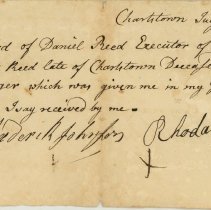 Charlstown July
d of Daniel Reed Executor of
Reed late of Charlstown Decease
ger which was given me in my
I say received by me
ederik Johnson Rhoda